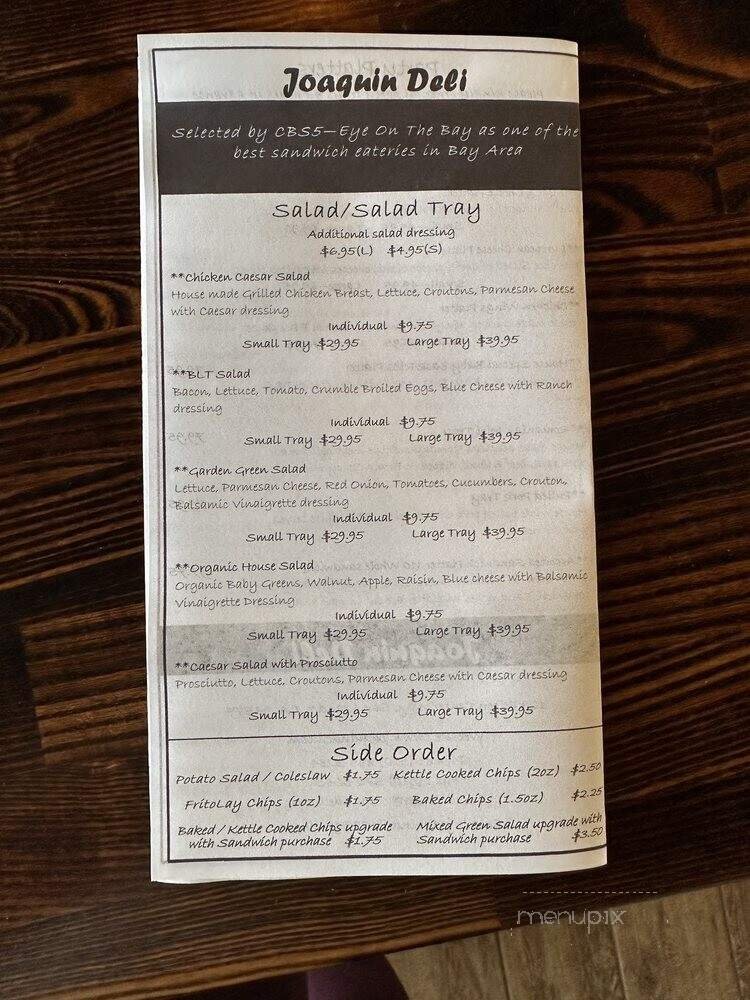 Joaquin Deli
Selected by CBS5—Eye On The Bay as one of the
best sandwich eateries in Bay Area
Salad/Salad Tray
Additional salad dressing
$6.95(L) $4.95(S)
**Chicken Caesar Salad
House made Grilled Chicken Breast, Lettuce, Croutons, Parmesan Cheese
with Caesar dressing
Individual $9.75
Small Tray $29.95 Large Tray $39.95
**BLT Salad
Bacon, Lettuce, Tomato, Crumble Broiled Eggs, Blue Cheese with Ranch
dressing
Individual $9.75
Small Tray $29.95 Large Tray $39.95
**Garden Green Salad
Lettuce, Parmesan Cheese, Red Onion, Tomatoes, Cucumbers, Crouton,
Balsamic Vinaigrette dressing
Individual $9.75
Small Tray $29.95 Large Tray $39.95
**Organic House Salad
Organic Baby Greens, Walnut, Apple, Raisin, Blue cheese with Balsamic
Vinaigrette Dressing
Individual $9.75
Small Tray $29.95 Large Tray $39.95
**Caesar Salad with Prosciutto
Prosciutto, Lettuce, Croutons, Parmesan Cheese with Caesar dressing
Individual $9.75
Small Tray $29.95 Large Tray $39.95
Side Order
Potato Salad / Coleslaw $1.75 Kettle Cooked Chips (2oz) $2.50
FritoLay Chips (1oz) $1.75 Baked Chips (1.5oz) $2.25
Baked / Kettle Cooked Chips upgrade
with Sandwich purchase $1.75
Mixed Green Salad upgrade with
Sandwich purchase $3.50
menupix